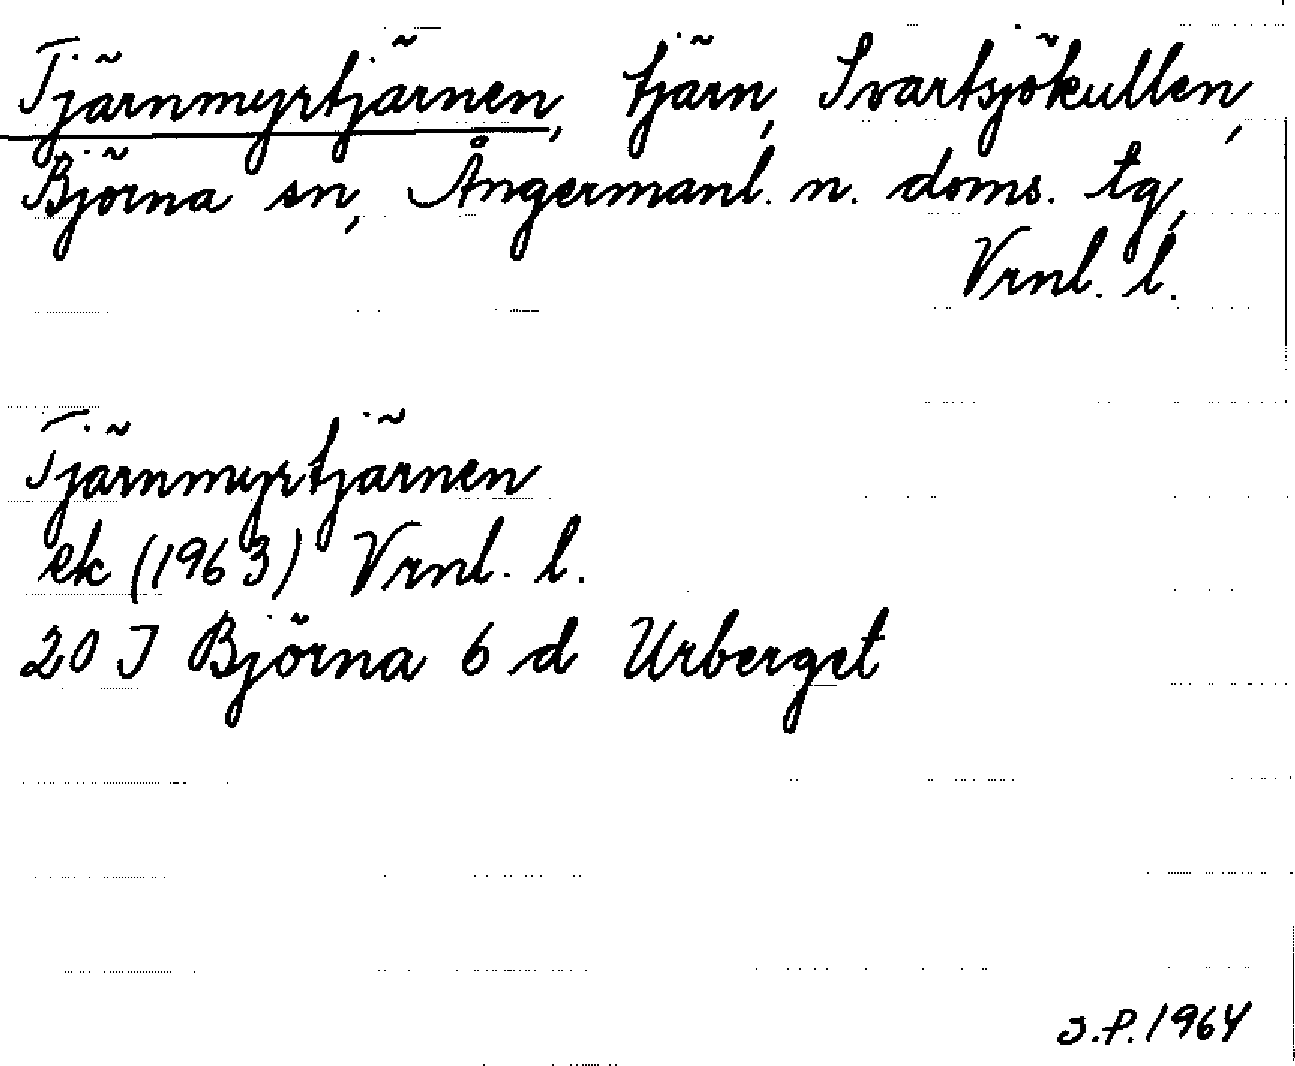 Tjärnmyrtjärnen, tjärn, Svartsjökullen,
Björna sn, Ångermanl. n. doms. tg,
Vrnl. l.
Tjärnmyrtjärnen
ek (1963) Vrnl. l.
20 I Björna 6 d Urberget
S.P. 1964